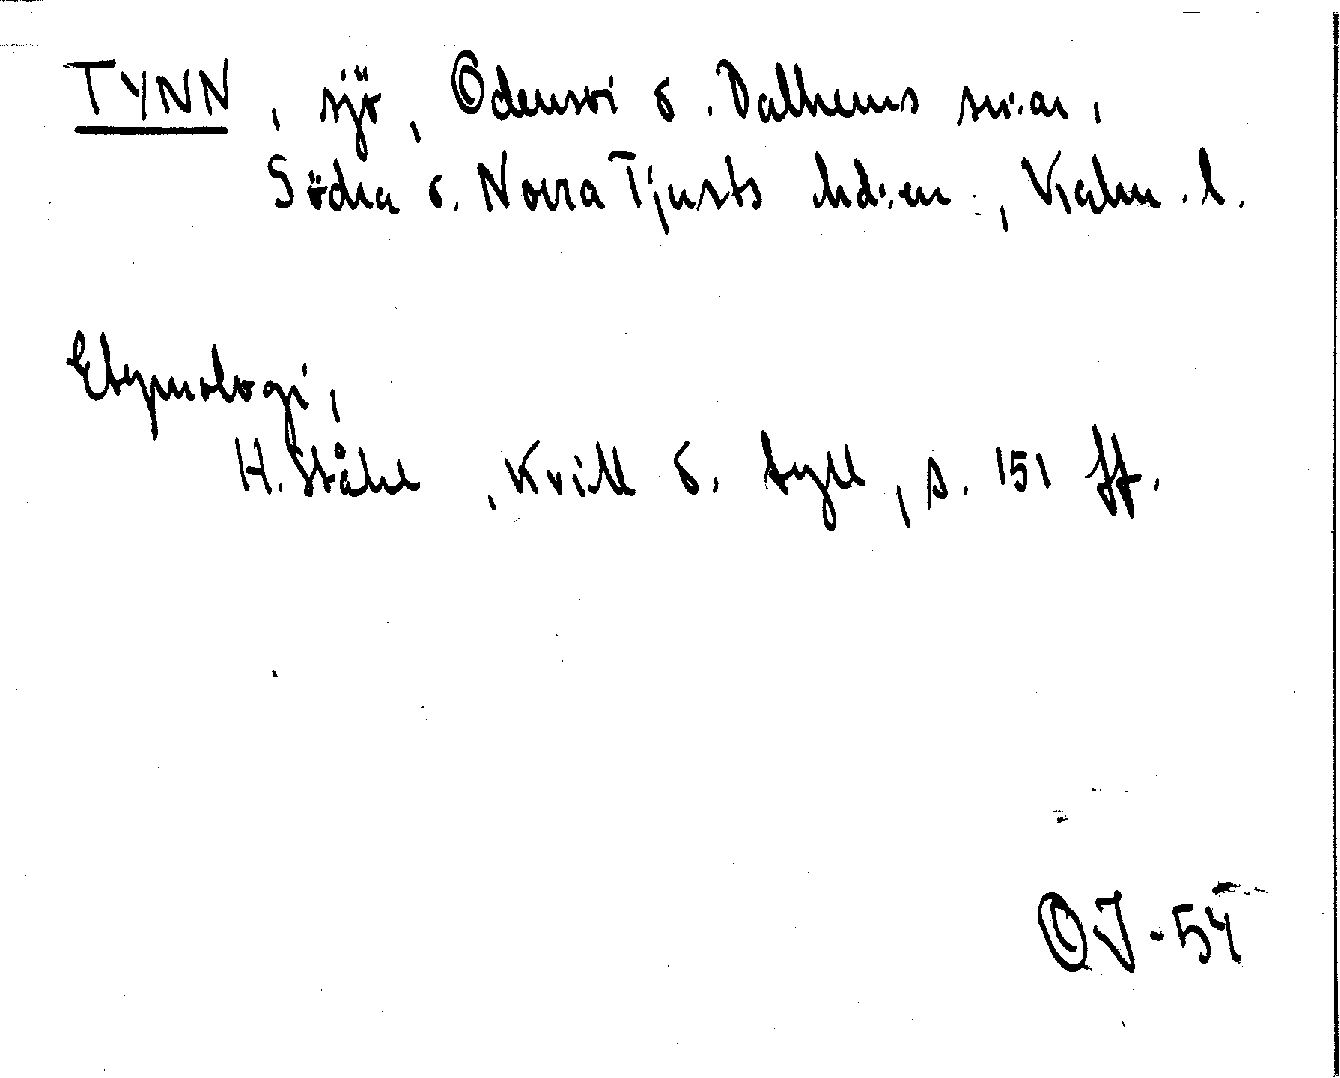 TYNN, sjö, Odensvi o. Dalhems snr.ar,
Södra o. Norra Tjusts hd:en., Kalm. l.
Etymologi,
H. Ståhl, Kvill o. tyll, s. 151 ff.
OJ-54